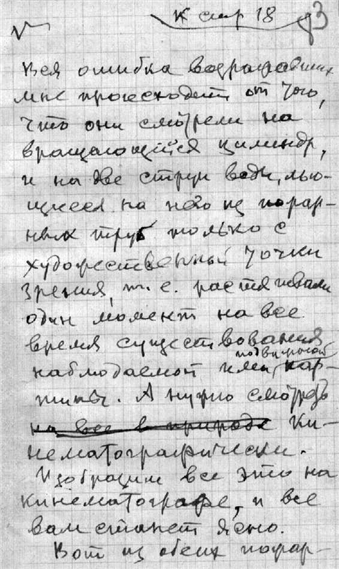 К стр 18
83
Вся ошибка возражавших
мне происходит от того,
что они смотрели на
вращающийся цилиндр,
и на две струи воды, лью-
щиеся на него из пожар-
ных труб только с
художественной точки
зрения, т. е. растягивали
один момент на все
время существования
подвижной
наблюдаемой ими кар-
тины. А нужно смотреть
на все в природе ки-
нематографически.
Изобразим все это на
кинематографе, и все
вам станет ясно.
Вот из обеих пожар-